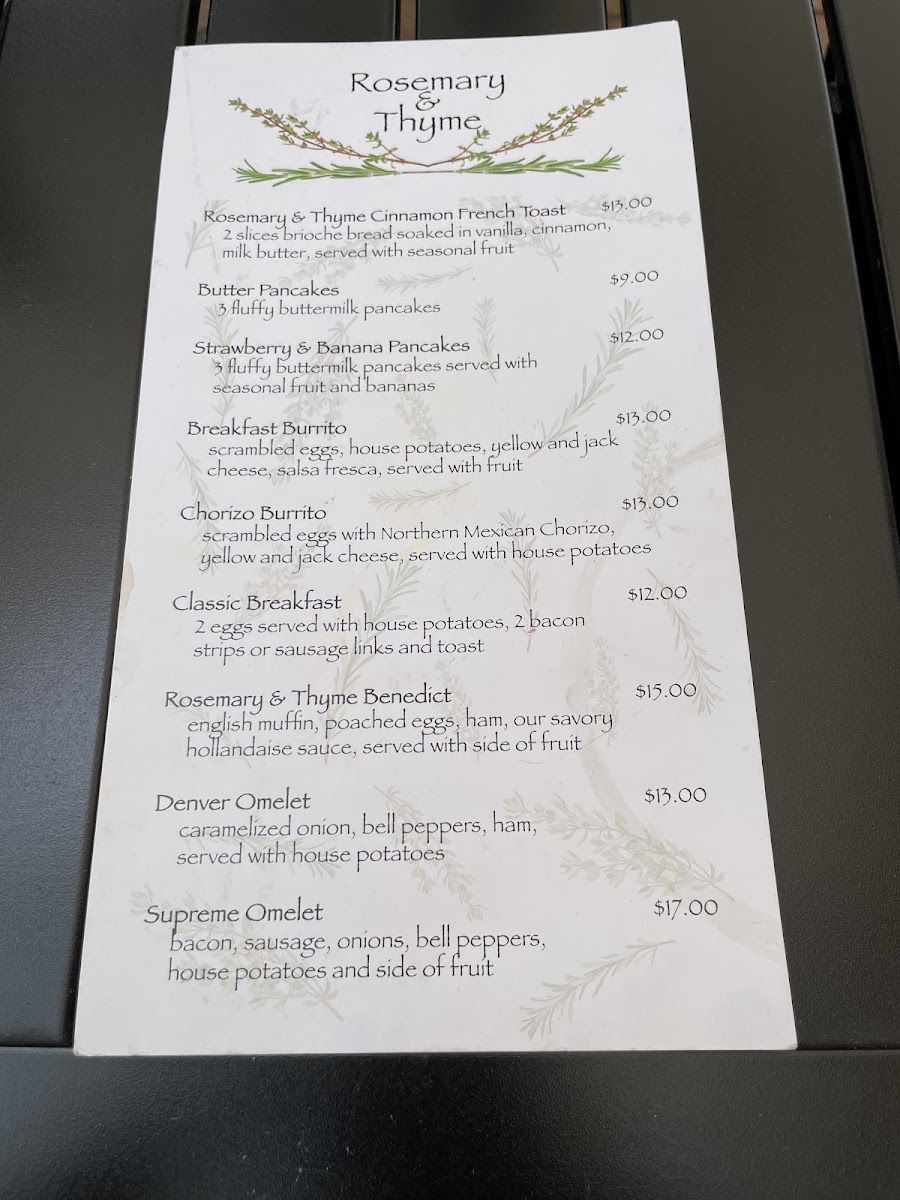 Rosemary
&
Thyme
Rosemary & Thyme Cinnamon French Toast $13.00
2 slices brioche bread soaked in vanilla, cinnamon,
milk butter, served with seasonal fruit
Butter Pancakes $9.00
3 fluffy buttermilk pancakes
Strawberry & Banana Pancakes $12.00
3 fluffy buttermilk pancakes served with
seasonal fruit and bananas
Breakfast Burrito $13.00
scrambled eggs, house potatoes, yellow and jack
cheese, salsa fresca, served with fruit
Chorizo Burrito $13.00
scrambled eggs with Northern Mexican Chorizo,
yellow and jack cheese, served with house potatoes
Classic Breakfast $12.00
2 eggs served with house potatoes, 2 bacon
strips or sausage links and toast
Rosemary & Thyme Benedict $15.00
english muffin, poached eggs, ham, our savory
hollandaise sauce, served with side of fruit
Denver Omelet $13.00
caramelized onion, bell peppers, ham,
served with house potatoes
Supreme Omelet $17.00
bacon, sausage, onions, bell peppers,
house potatoes and side of fruit